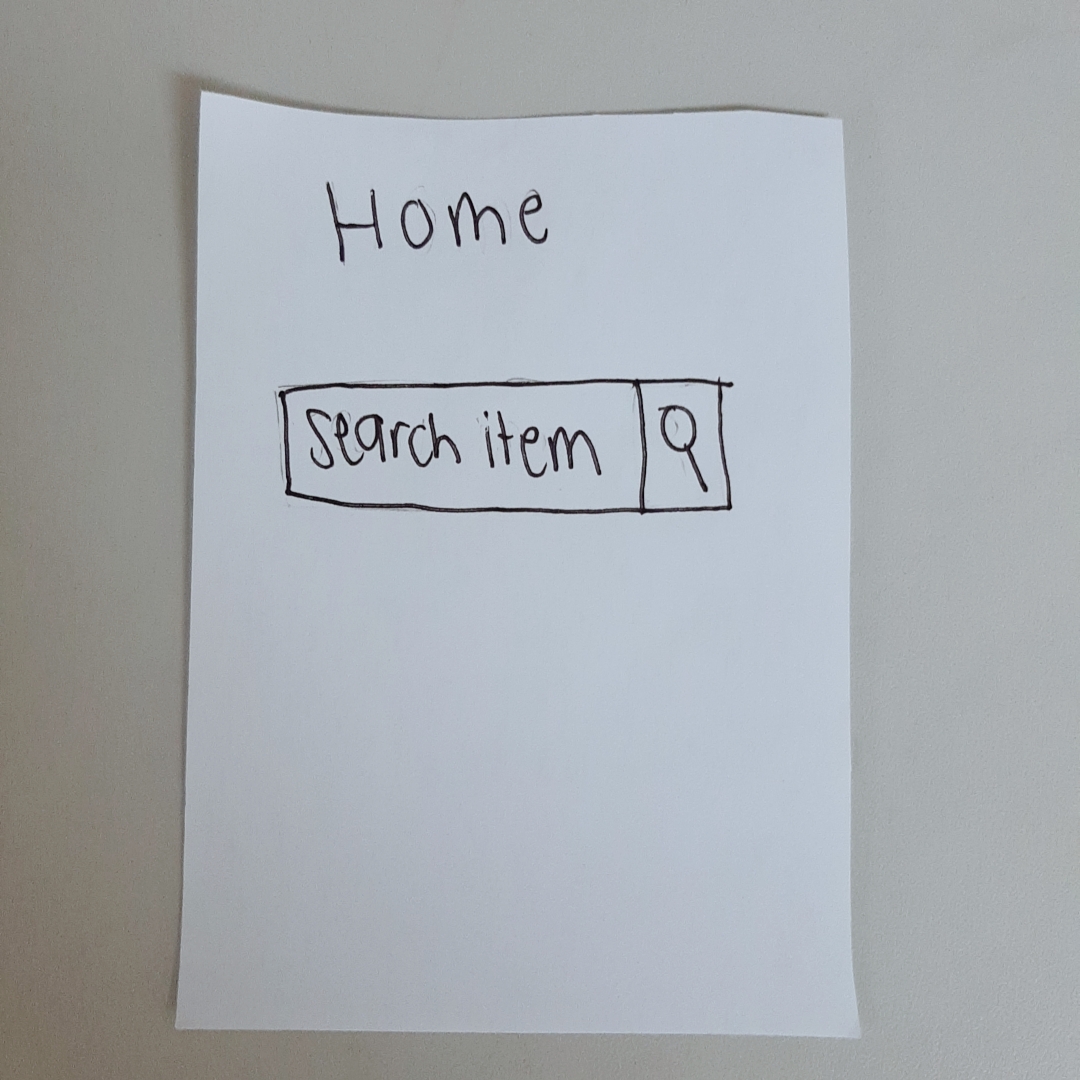 Home
search item